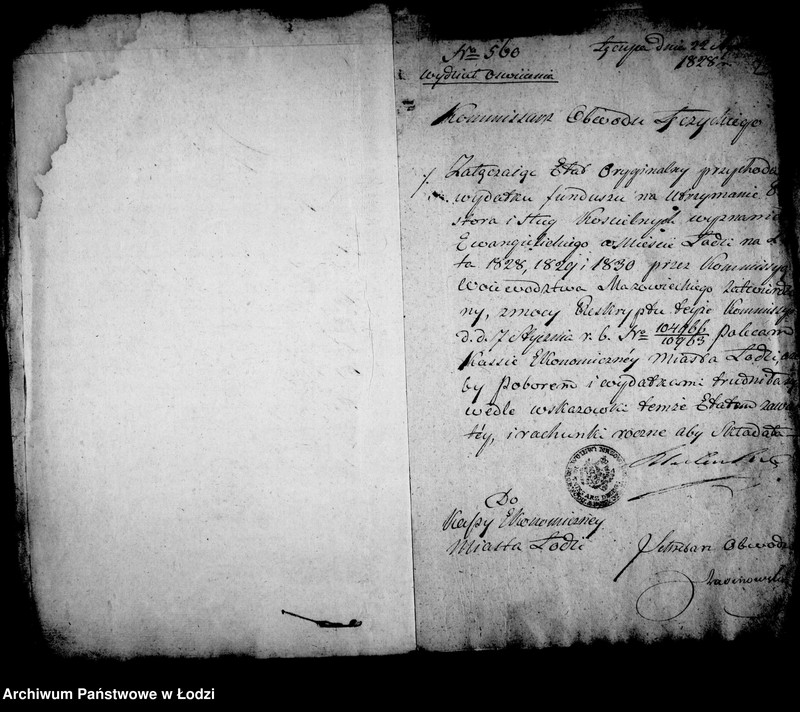 No 560
Łęczyca dnia 22
1828 r.
2
Wydział Oswiecenia
Kommissarz Obwodu Łęczyckiego
Załączaiąc Etat Oryginalny przychodu
wydatku funduszu na Utrzymanie
stora i Sług Kościelnych wyznania
Ewangielickiego w Mieście Łodzi na La
ta 1828, 1829 i 1830 przez Kommissyą
Woiewodztwa Mazowieckiego zatwierdzo
ny, zmocy Reskryptu teyże Kommissyi
d. d. 7 Stycznia r. b. No 104966/10963 polecam
Kassie Ekonomicznéy Miasta Łodzi, a
by poborem i wydatkami trudniła się
wedle wskazowki temże Etatem zawar
téy, i rachunki roczne aby składała
Do
Kassy Ekonomicznéy
Miasta Łodzi
Sekretarz Obwodu
Archiwum Państwowe w Łodzi